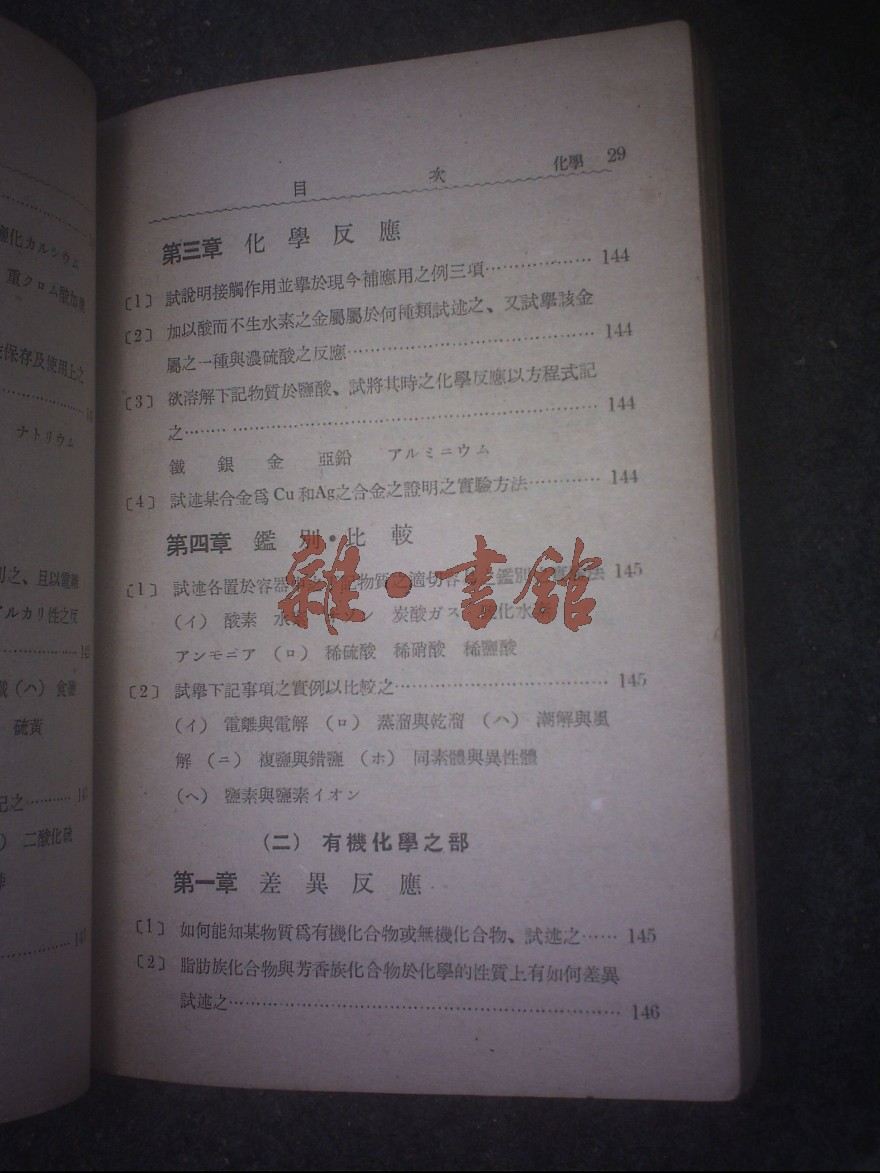 目 次 化學 29
第三章 化學反應
〔1〕 試說明接觸作用並擧於現今補應用之例三項………………… 144
〔2〕 加以酸而不生水素之金屬屬於何種類試述之、又試擧該金
屬之一種與濃硫酸之反應………………………………………… 144
〔3〕 欲溶解下記物質於鹽酸、試將其時之化學反應以方程式記
之…………………………………………………………………… 144
鐵 銀 金 亞鉛 アルミニウム
〔4〕 試述某合金爲 Cu 和Ag之合金之證明之實驗方法………… 144
第四章 鑑別・比較
〔1〕 試述各置於容器 記物質之適切容 鑑別 法 145
(イ) 酸素 水 ン 炭酸ガス 化水
アンモニア (ロ) 稀硫酸 稀硝酸 稀鹽酸
〔2〕 試擧下記事項之實例以比較之……………………………… 145
(イ) 電離與電解 (ロ) 蒸溜與乾溜 (ハ) 潮解與風
解 (ニ) 複鹽與錯鹽 (ホ) 同素體與異性體
(ヘ) 鹽素與鹽素イオン
(二) 有機化學之部
第一章 差異反應
〔1〕 如何能知某物質爲有機化合物或無機化合物、試述之…… 145
〔2〕 脂肪族化合物與芳香族化合物於化學的性質上有如何差異
試述之……………………………………………………………… 146
雜・書館
化カルシウム
重クロム酸加
保存及使用上之
ナトリウム
之、且以電離
アルカリ性之反
(ハ) 食鹽
硫黃
記之…………
二酸化硫